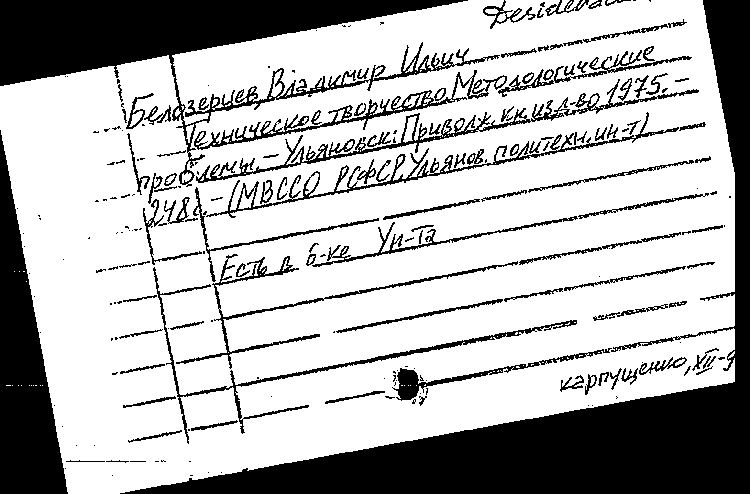 Desiderata
Белозерцев, Владимир Ильич
Техническое творчество. Методологические
проблемы. – Ульяновск: Приволж. кн. изд-во, 1975. –
248с. – (МВССО РСФСР, Ульянов. политехн. ин-т)
Есть в б-ке Ун-та
карпущенко, XII-9